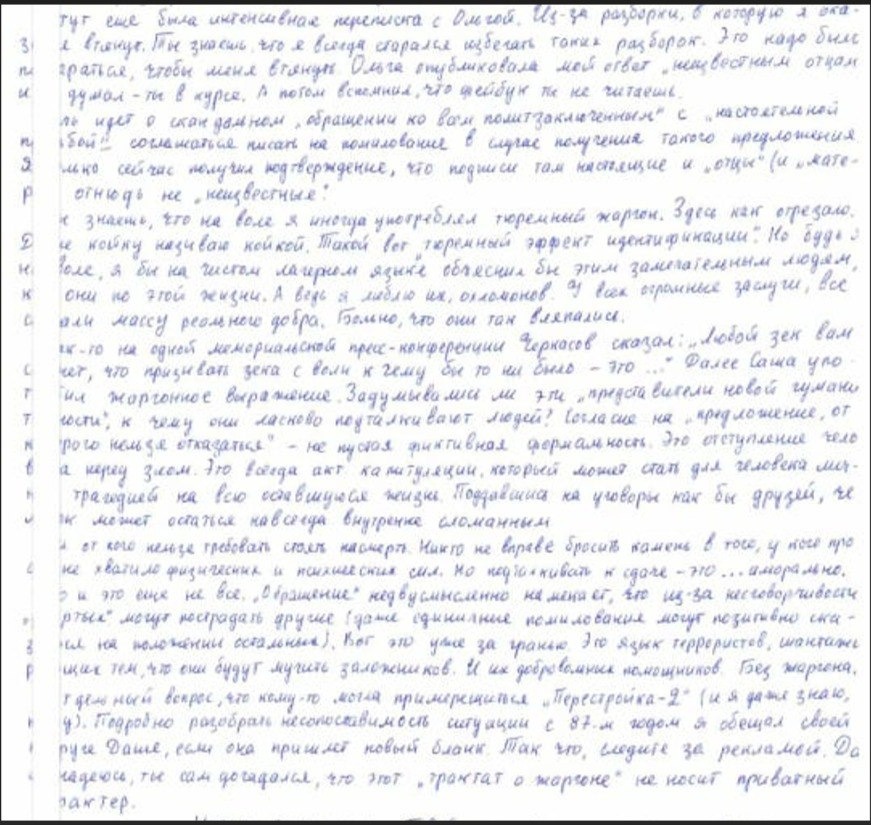 тут еще была интенсивная переписка с Ольгой. Из-за разборки, в которую я ока-
втянут. Ты знаешь, что я всегда старался избегать таких разборок. Это надо было
раться, чтобы меня втянуть. Ольга опубликовала мой ответ „неизвестным отцам
думал - ты в курсе. А потом вспомнил, что фейсбук ты не читаешь.
чь идет о скандальном „обращении ко всем политзаключенным" с „настоятельной
ьбой" соглашаться писать на помилование в случае получения такого предложения
лько сейчас получил подтверждение, что подписи там настоящие и „отцы" (и „мате-
отнюдь не „неизвестные".
знаешь, что на воле я иногда употреблял тюремный жаргон. Здесь как отрезало.
е койку называю койкой. Такой вот „тюремный эффект идентификации". Но будь я
воле, я бы на чистом лагерном языке объяснил бы этим замечательным людям,
они по этой жизни. А ведь я люблю их, охламонов. У всех огромные заслуги, все
али массу реального добра. Больно, что они так вляпались.
ак-то на одной мемориальской пресс-конференции Черкасов сказал: „Любой зек вам
жет, что призывать зека с воли к чему бы то ни было - это ..." Далее Саша упо-
бил жаргонное выражение. Задумывались ли эти „представители новой гуман
ности", к чему они ласково подталкивают людей? Согласие на „предложение, от
рого нельзя отказаться" - не пустая фиктивная формальность. Это отступление чело
а перед злом. Это всегда акт капитуляции, который может стать для человека лич-
трагедией на всю оставшуюся жизнь. Поддавшись на уговоры как бы друзей, че
к может остаться навсегда внутренне сломанным
и от кого нельзя требовать стоять насмерть. Никто не вправе бросить камень в того, у кого про
не хватило физических и психических сил. Но подталкивать к сдаче - это ... аморально.
о и это еще не все. „Обращение" недвусмысленно намекает, что из-за несговорчивости
ртых" могут пострадать другие (даже единичные помилования могут позитивно ска-
ся на положении остальных). Вот это уже за гранью. Это язык террористов, шантажи
щих тем, что они будут мучить заложников. И их добровольных помощников. Без жаргона.
тдельный вопрос, что кому-то могла примерещиться „Перестройка-2" (и я даже знаю,
у). Подробно разобрать несопоставимость ситуации с 87-м годом я обещал своей
руге Даше, если она пришлет новый бланк. Так что, следите за рекламой. Да
надеюсь, ты сам догадался, что этот „трактат о жаргоне" не носит приватный
рактер.